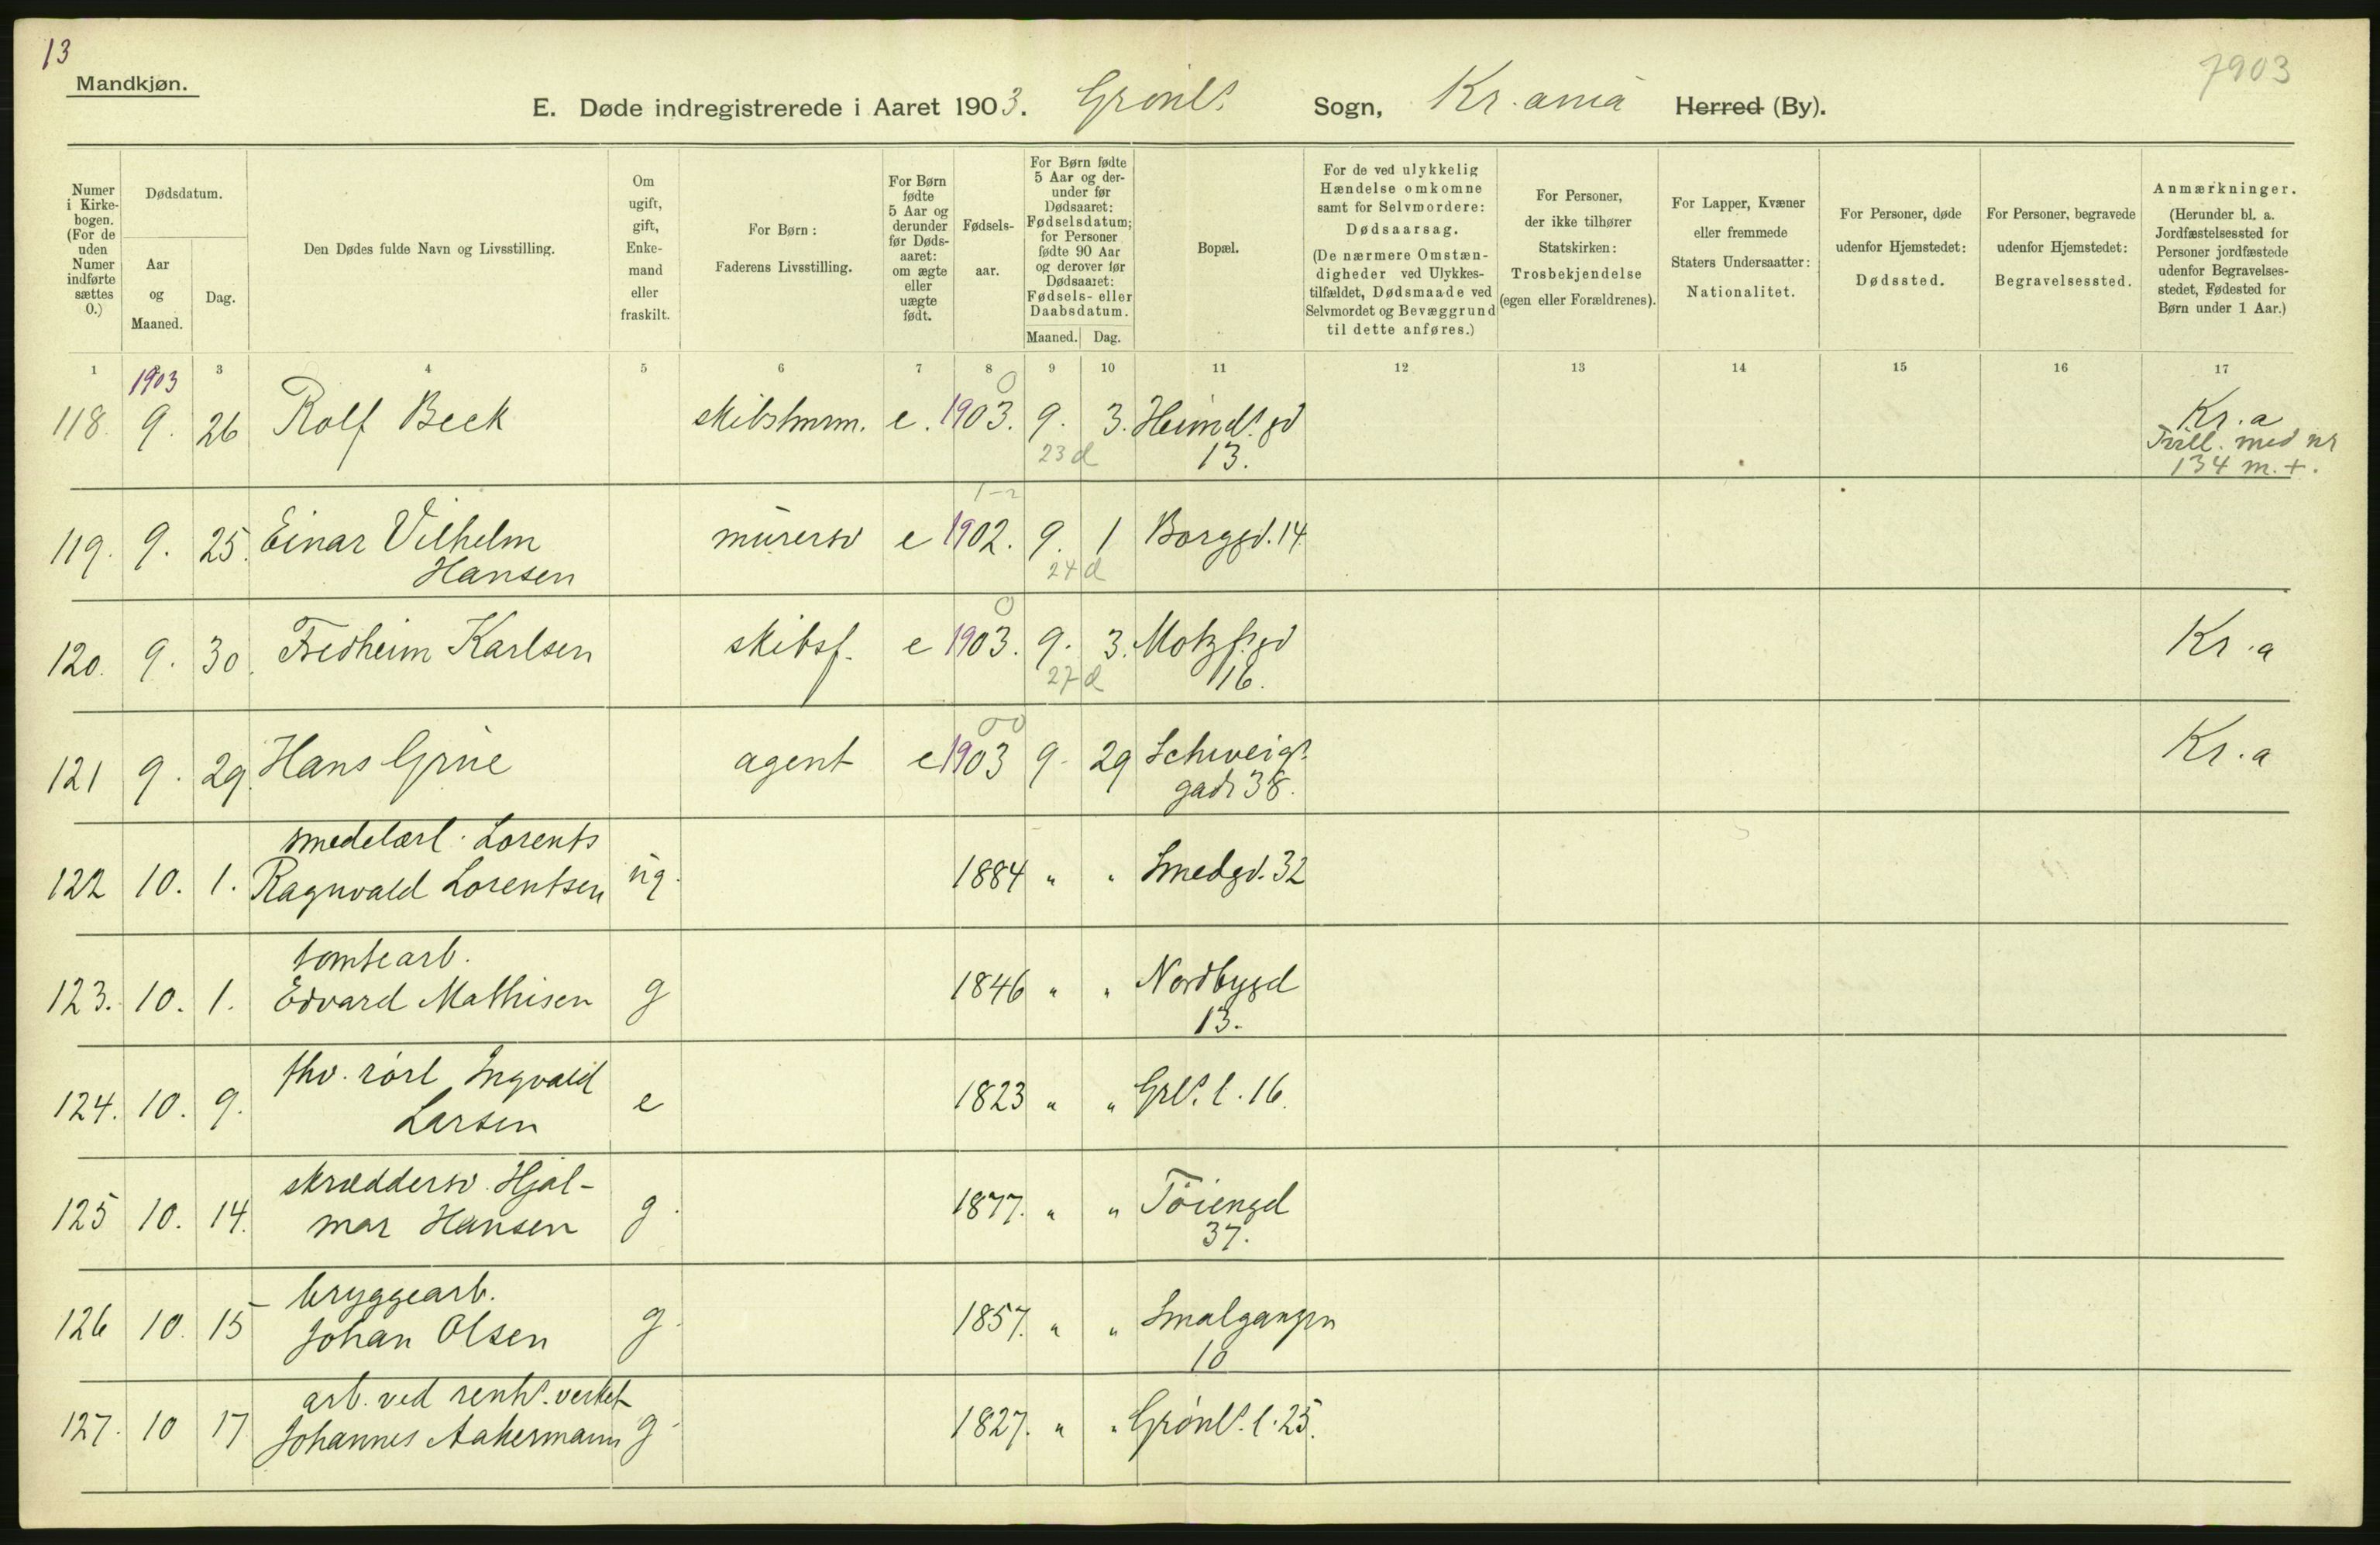 13
7903
Mandkjøn.
E. Døde indregistrerede i Aaret 1903. Grønls Sogn, Kr.ania Herred (By).
Numer i Kirkebogen. (For de uden Numer indførte sættes 0.)
Dødsdatum.
Aar og Maaned.
Dag.
Den Dødes fulde Navn og Livsstilling.
Om ugift, gift, Enkemand eller fraskilt.
For Børn: Faderens Livsstilling.
For Børn fødte 5 Aar og derunder før Dødsaaret: om ægte eller uægte født.
Fødselsaar.
For Børn fødte 5 Aar og derunder før Dødsaaret: Fødselsdatum; for Personer fødte 90 Aar og derover før Dødsaaret: Fødsels- eller Daabsdatum.
Maaned. Dag.
Bopæl.
For de ved ulykkelig Hændelse omkomne samt for Selvmordere: Dødsaarsag. (De nærmere Omstændigheder ved Ulykkestilfældet, Dødsmaade ved Selvmordet og Bevæggrund til dette anføres.)
For Personer, der ikke tilhører Statskirken: Trosbekjendelse (egen eller Forældrenes).
For Lapper, Kvæner eller fremmede Staters Undersaatter: Nationalitet.
For Personer, døde udenfor Hjemstedet: Dødssted.
For Personer, begravede udenfor Hjemstedet: Begravelsessted.
Anmærkninger. (Herunder bl. a. Jordfæstelsessted for Personer jordfæstede udenfor Begravelsesstedet, Fødested for Børn under 1 Aar.)
1 1903 3 4 5 6 7 8 9 10 11 12 13 14 15 16 17
118. 9. 26 Rolf Beck skibstmrm. e. 1903. 9. 3. Heimds. gd Kr.a
0 23 d 13. Tvill. med nr
134 m. +.
119. 9. 25. Einar Vilhelm mürersv e 1902. 9. 1 Borggd. 14
Hansen 1-2 24 d
120. 9. 30. Fredheim Karlsen skibsf. e 1903. 9. 3. Motzf. gd Kr.a
0 27 d 16.
121 9. 29. Hans Grüe agent e 1903 9. 29 Schweigs Kr.a
00 gad 38.
smedelærl. Lorents
122 10. 1. Ragnvald Lorentsen üg. 1884 " " Smedgd. 32
tomtearb.
123. 10. 1. Edvard Mathisen g 1846 " " Nordbygd
13.
fhv. rørl Ingvald
124. 10. 9. Larsen e 1823 " " Grls. l. 16.
skræddersv. Hjal-
125 10. 14. mar Hansen g. 1877. " " Töiengd
37.
bryggearb.
126 10. 15 Johan Olsen g. 1857. " " Smalgangen
10
arb. ved renhs. verket
127. 10 17 Johannes Aakermann g. 1827. " " Grønls. l. 25.